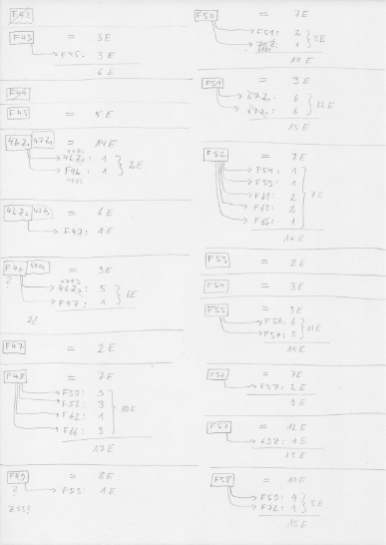 F42
F43 = 3E
F45: 3E
6E
F44
F45 = 5E
46Z1 47Z1 = 14E
46Z2: 1
F46: 1 } 2E
46Z2 47Z2 = 6E
F47: 1E
F46 = 9E
?
46Z2: 5
F47: 1 } 6E
F47 = 2E
F48 = 7E
F50: 3
F52: 3
F62: 1
F66: 3 } 10E
17E
F49 = 8E
? F53: 1E
F50 = 7E
F51: 2
1 } 3E
10E
F51 = 3E
6
6 } 12E
15E
F52 = 7E
F54: 1
F59: 1
F61: 2
F62: 2
F66: 1 } 7E
14E
F53 = 2E
F54 = 3E
F55 = 3E
F56: 6
5 } 11E
14E
F56 = 7E
F57: 2E
9E
F57 = 12E
1E
13E
F58 = 10E
F59: 4
F72: 1 } 5E
15E